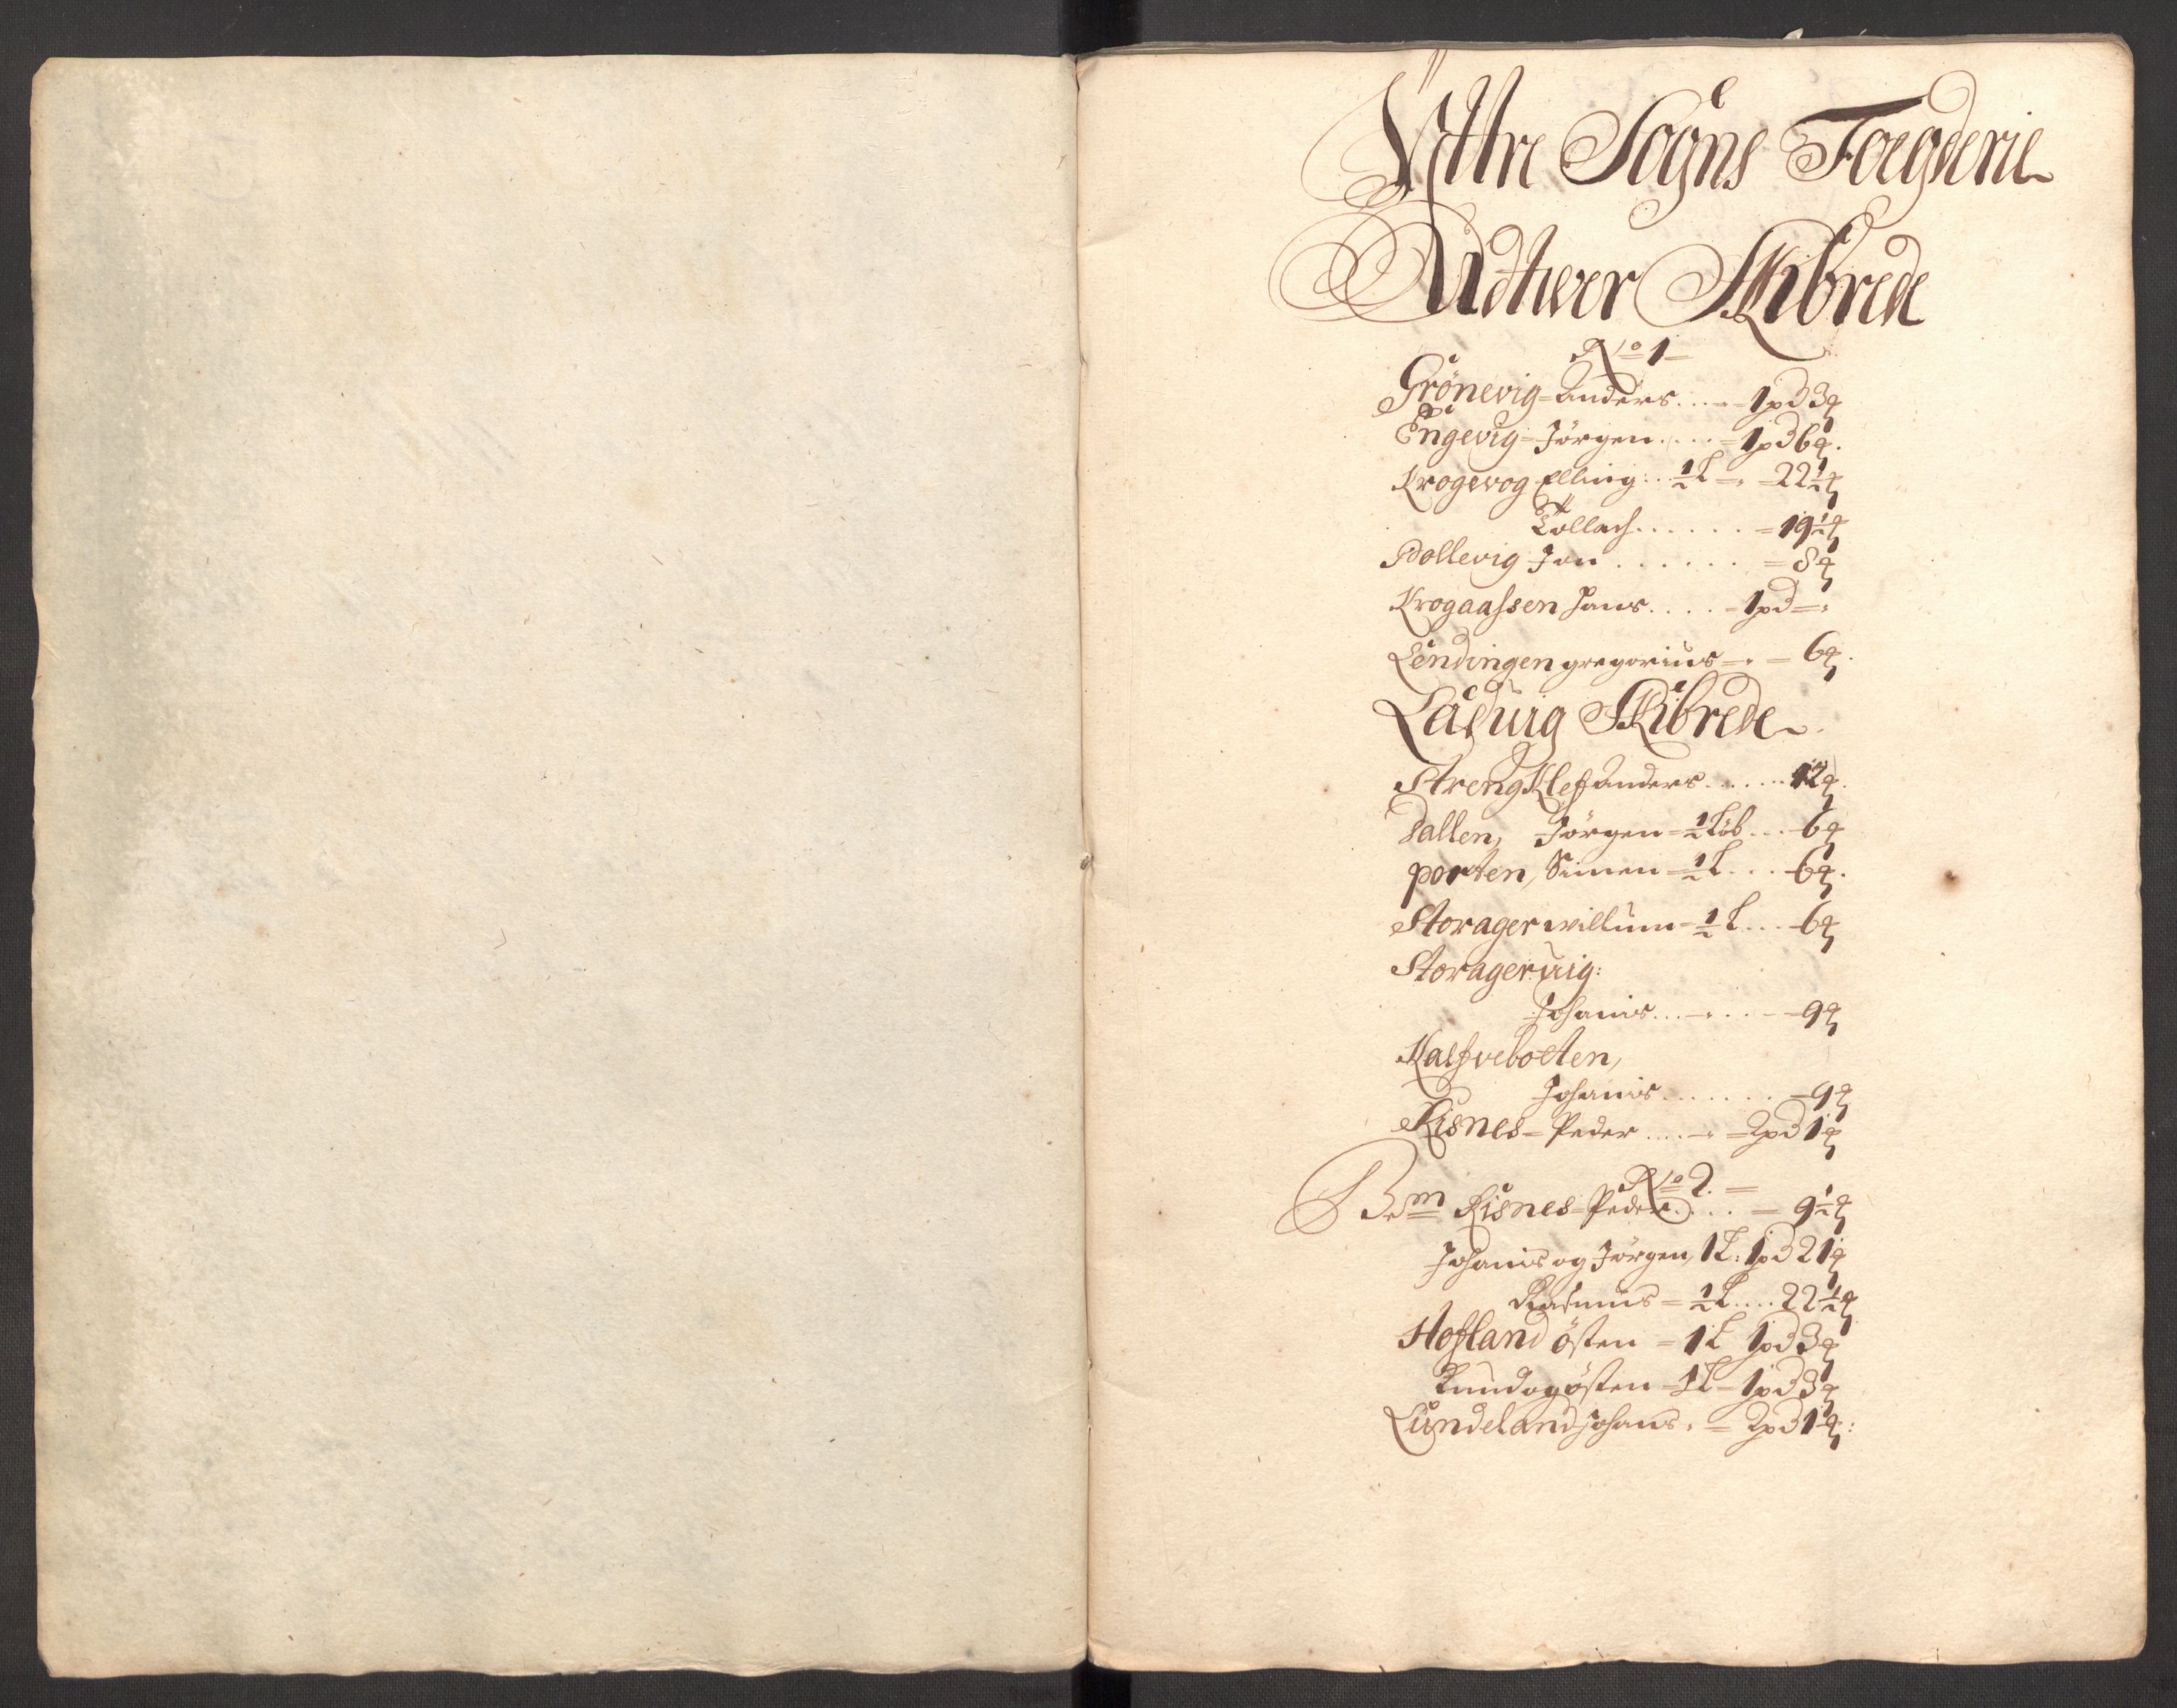 Yttre Sogns Foegderie
Udtwer Skibrede
No 1
Grönevig - Anders ... 1 pd 3 ꝶ
Engevig - Jörgen ... 1 pd 6 ꝶ.
Krogevog Elling: .. ½ L - 22½ ꝶ
Tollach ...... 19½ ꝶ
Bollevig Jon ...... 8 ꝶ
Krogaassen Hans .... 1 pd
Lendingen gregorius - 6 ꝶ.
Ladvig Skibrede
Streng Klef anders ...... 12 ꝶ.
Dallen, Jörgen - ½ Löb ... 6 ꝶ
porten, Simen - ½ L ... 6 ꝶ.
Storager willum - ½ L ... 6 ꝶ
Storagervig:
Johanis ... 9 ꝶ
Kalfvebotten,
Johanis ....... 9 ꝶ
Risnes - Peder .... 2 pd 1 ꝶ
No 2.
Risnes - Peder .... 9½ ꝶ
Johanis og Jörgen, 1 L: 1 pd 21 ꝶ
Rasmus = ½ L .... 22½ ꝶ
Hofland östen = 1 L 1 pd 3 ꝶ
Knud og östen - 1 L - 1 pd 3 ꝶ
Lundeland Johans. = 2 pd 1 ꝶ: